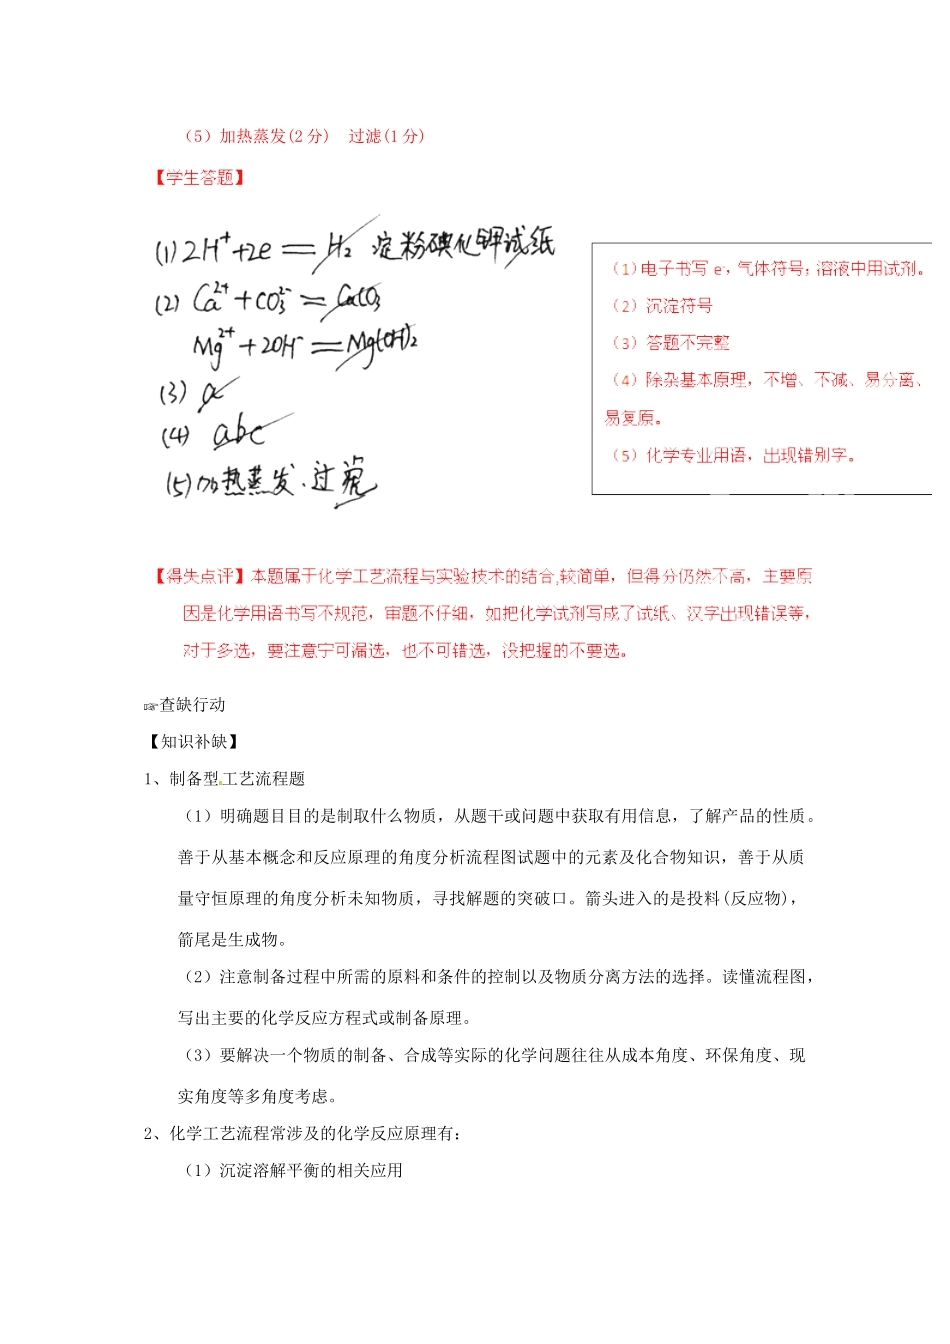 （5）加热蒸发(2 分)　过滤(1 分)
【学生答题】
(1) 2H⁺+2e = H₂ 淀粉碘化钾试纸
(2) Ca²⁺+CO₃²⁻ = CaCO₃
Mg²⁺+2OH⁻ = Mg(OH)₂
(3) a
(4) abc
(5) 加热蒸发、过
（1）电子书写 e⁻，气体符号；溶液中用试剂。
（2）沉淀符号
（3）答题不完整
（4）除杂基本原理，不增、不减、易分离、
易复原。
（5）化学专业用语，出现错别字。
【得失点评】本题属于化学工艺流程与实验技术的结合,较简单，但得分仍然不高，主要原
因是化学用语书写不规范，审题不仔细，如把化学试剂写成了试纸、汉字出现错误等，
对于多选，要注意宁可漏选，也不可错选，没把握的不要选。
☞查缺行动
【知识补缺】
1、制备型工艺流程题
（1）明确题目目的是制取什么物质，从题干或问题中获取有用信息，了解产品的性质。
善于从基本概念和反应原理的角度分析流程图试题中的元素及化合物知识，善于从质
量守恒原理的角度分析未知物质，寻找解题的突破口。箭头进入的是投料(反应物)，
箭尾是生成物。
（2）注意制备过程中所需的原料和条件的控制以及物质分离方法的选择。读懂流程图，
写出主要的化学反应方程式或制备原理。
（3）要解决一个物质的制备、合成等实际的化学问题往往从成本角度、环保角度、现
实角度等多角度考虑。
2、化学工艺流程常涉及的化学反应原理有:
（1）沉淀溶解平衡的相关应用